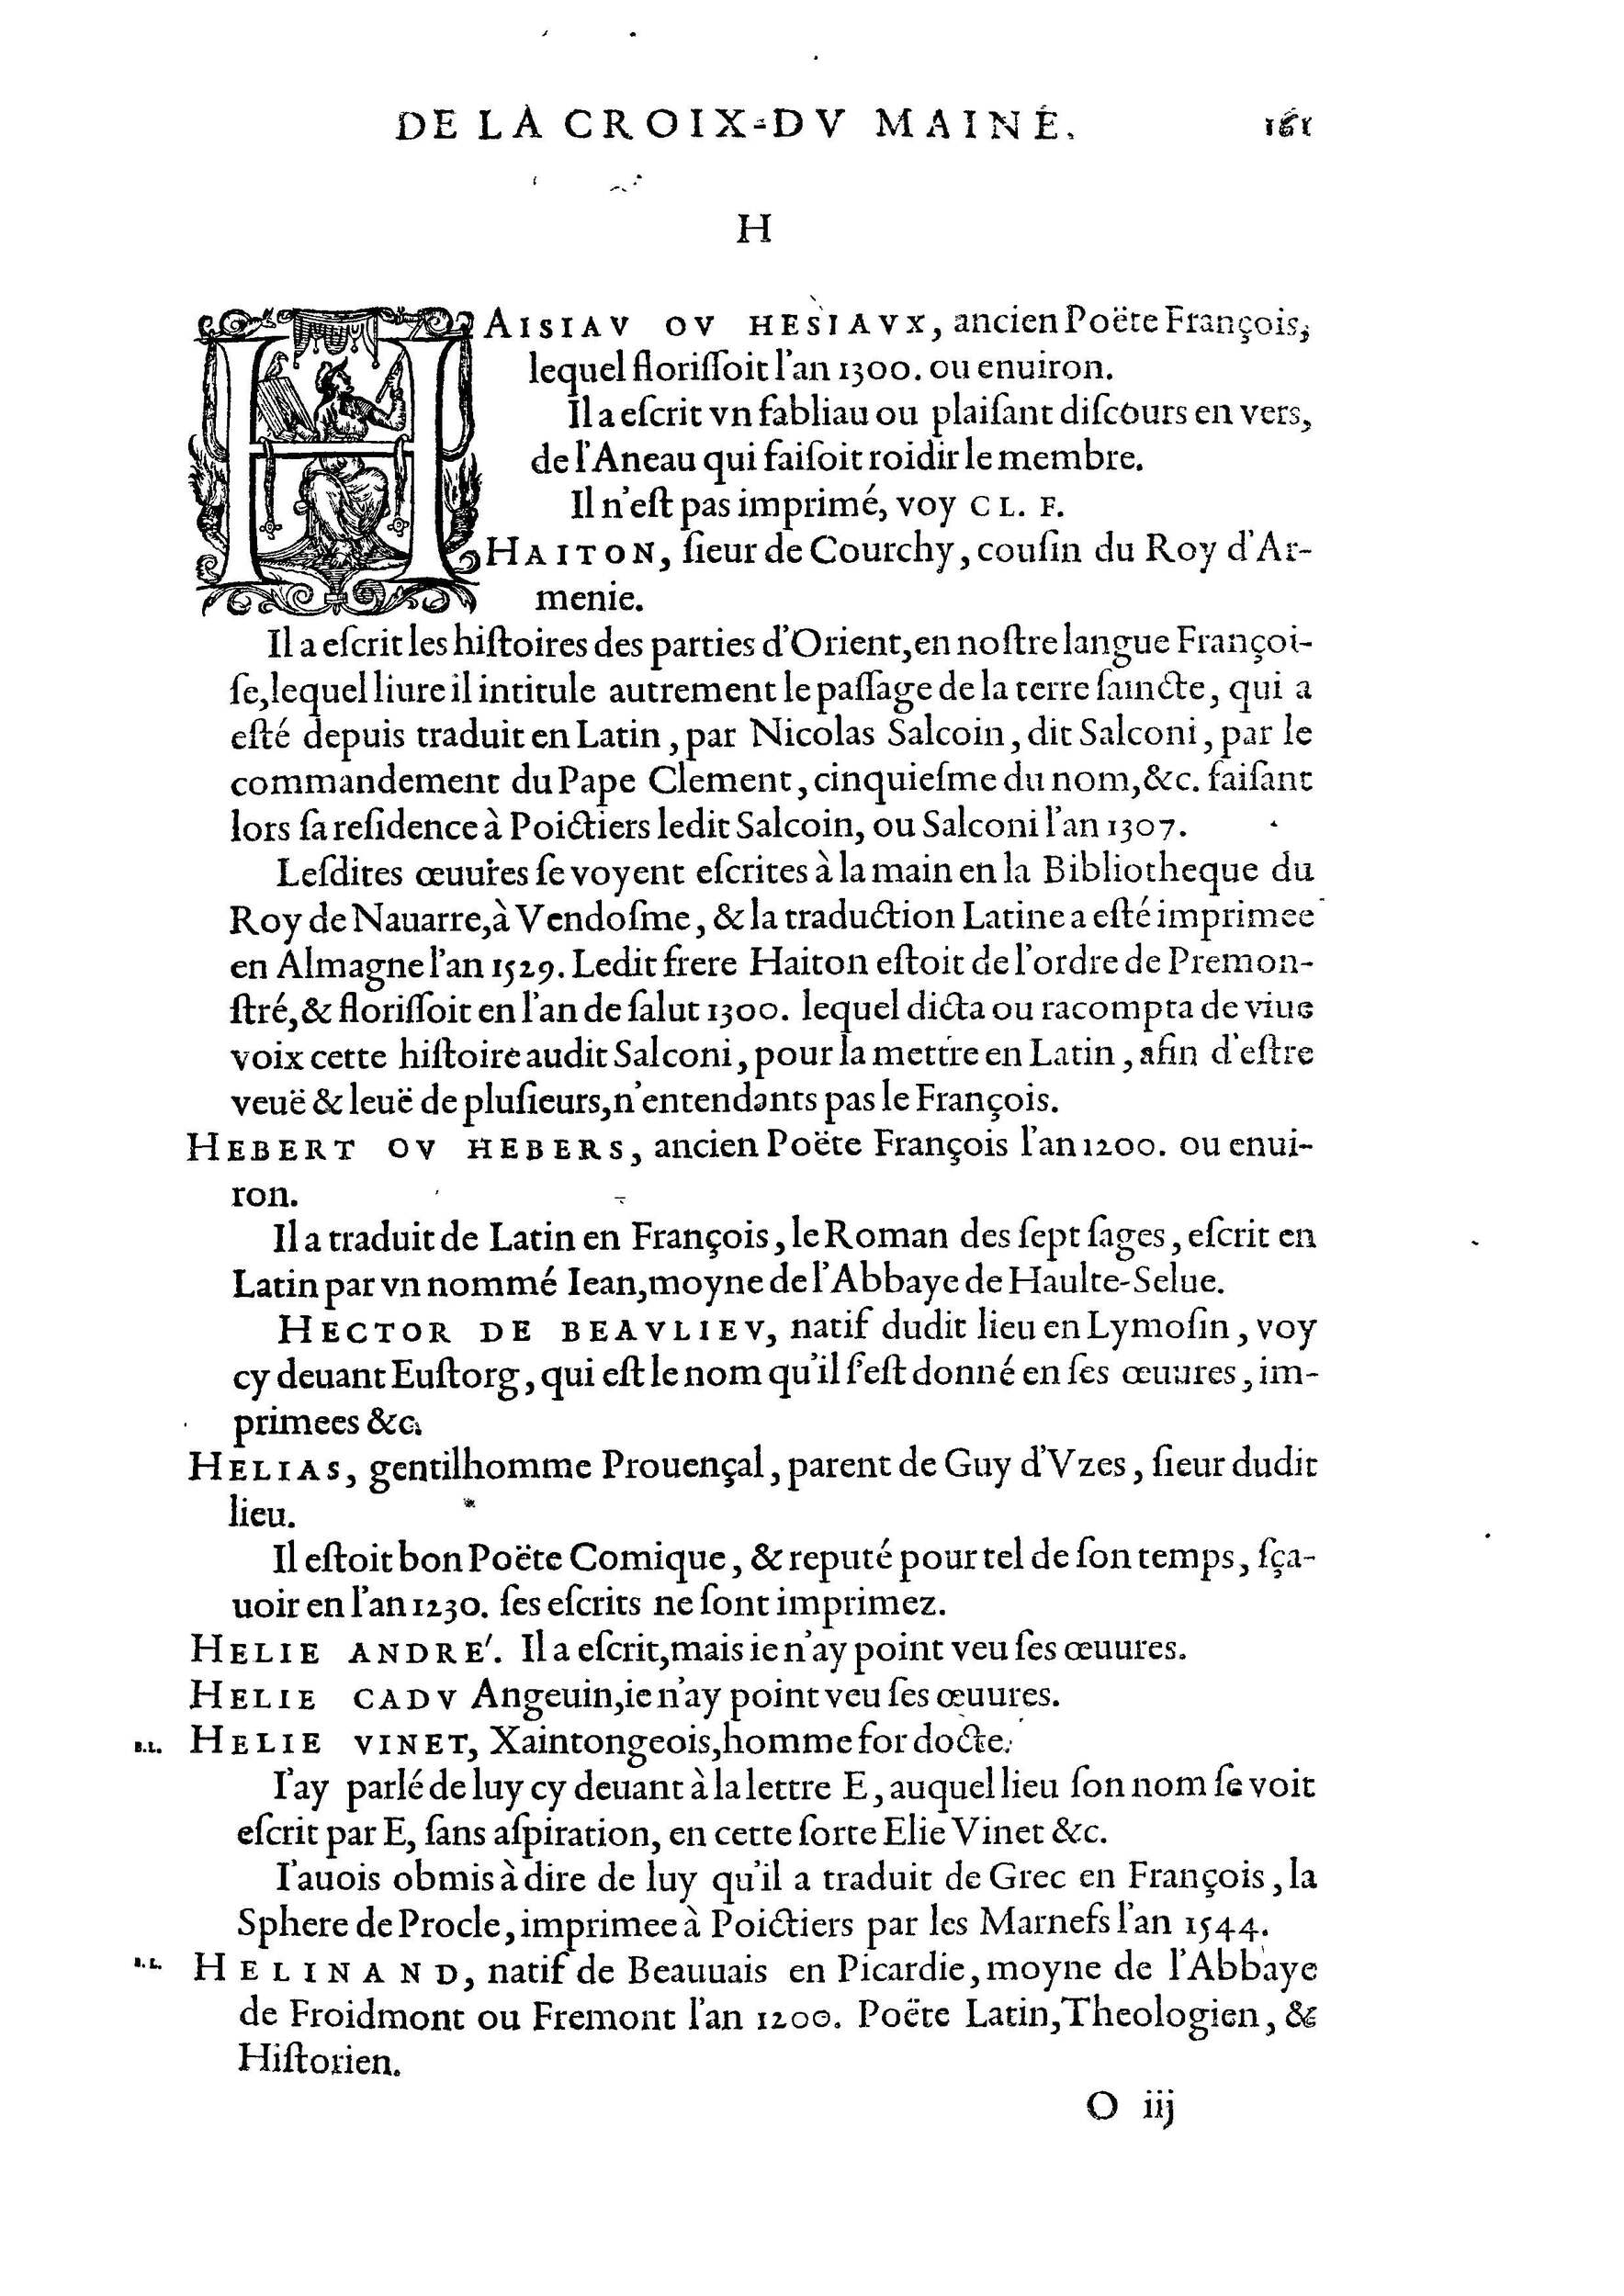 DE LA CROIX-DV MAINE. 161
H
HAISIAV OV HESIAVX, ancien Poëte François,
lequel floriſſoit l'an 1300. ou enuiron.
Il a eſcrit vn fabliau ou plaiſant diſcours en vers,
de l'Aneau qui faiſoit roidir le membre.
Il n'eſt pas imprimé, voy CL. F.
HAITON, ſieur de Courchy, couſin du Roy d'Ar-
menie.
Il a eſcrit les hiſtoires des parties d'Orient, en noſtre langue Françoi-
ſe, lequel liure il intitule autrement le paſſage de la terre ſaincte, qui a
eſté depuis traduit en Latin, par Nicolas Salcoin, dit Salconi, par le
commandement du Pape Clement, cinquieſme du nom, &c. faiſant
lors ſa reſidence à Poictiers ledit Salcoin, ou Salconi l'an 1307.
Leſdites œuures ſe voyent eſcrites à la main en la Bibliotheque du
Roy de Nauarre, à Vendoſme, & la traduction Latine a eſté imprimee
en Almagne l'an 1529. Ledit frere Haiton eſtoit de l'ordre de Premon-
ſtré, & floriſſoit en l'an de ſalut 1300. lequel dicta ou racompta de viue
voix cette hiſtoire audit Salconi, pour la mettre en Latin, afin d'eſtre
veuë & leuë de pluſieurs, n'entendants pas le François.
HEBERT OV HEBERS, ancien Poëte François l'an 1200. ou enui-
ron.
Il a traduit de Latin en François, le Roman des ſept ſages, eſcrit en
Latin par vn nommé Iean, moyne de l'Abbaye de Haulte-Selue.
HECTOR DE BEAVLIEV, natif dudit lieu en Lymoſin, voy
cy deuant Euſtorg, qui eſt le nom qu'il ſ'eſt donné en ſes œuures, im-
primees &c.
HELIAS, gentilhomme Prouençal, parent de Guy d'Vzes, ſieur dudit
lieu.
Il eſtoit bon Poëte Comique, & reputé pour tel de ſon temps, ſça-
uoir en l'an 1230. ſes eſcrits ne ſont imprimez.
HELIE ANDRE'. Il a eſcrit, mais ie n'ay point veu ſes œuures.
HELIE CADV Angeuin, ie n'ay point veu ſes œuures.
B.L. HELIE VINET, Xaintongeois, homme for docte.
I'ay parlé de luy cy deuant à la lettre E, auquel lieu ſon nom ſe voit
eſcrit par E, ſans aſpiration, en cette ſorte Elie Vinet &c.
I'auois obmis à dire de luy qu'il a traduit de Grec en François, la
Sphere de Procle, imprimee à Poictiers par les Marnefs l'an 1544.
B.L. HELINAND, natif de Beauuais en Picardie, moyne de l'Abbaye
de Froidmont ou Fremont l'an 1200. Poëte Latin, Theologien, &
Hiſtorien.
O iij